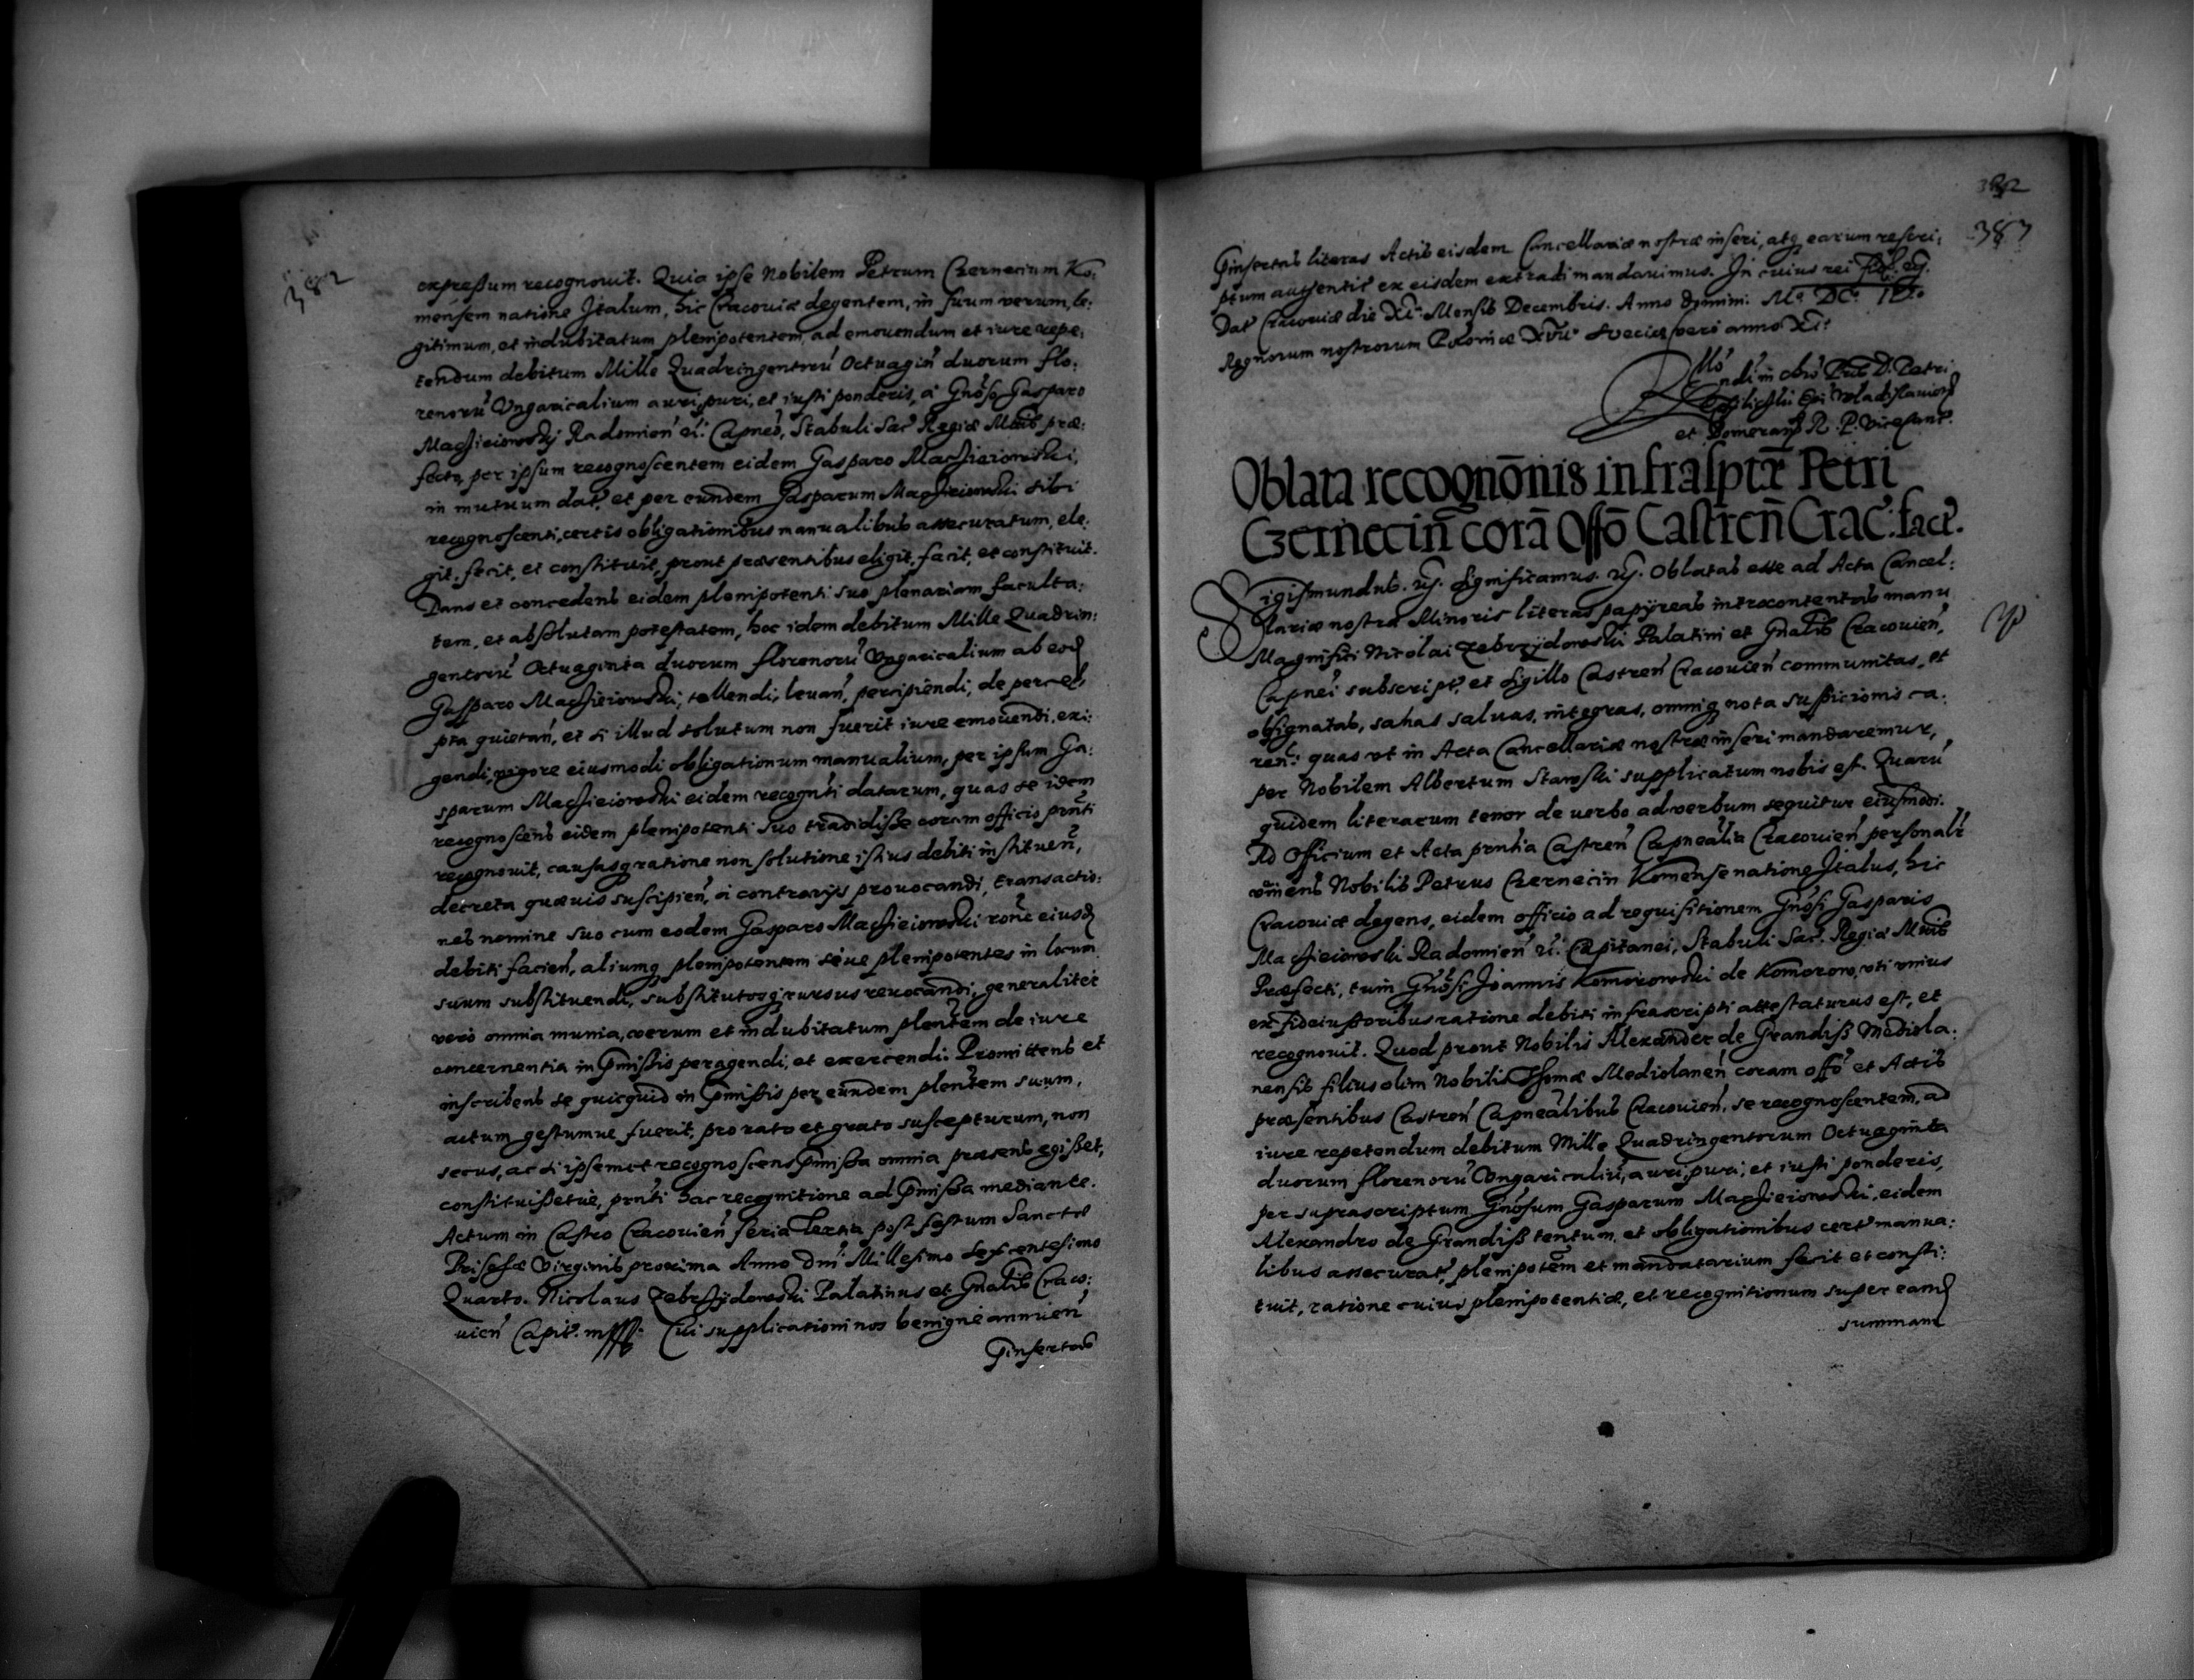 382
expressum recognovit. Quia ipse Nobilem Petrum Czernecinum Ko:
mensem natione Italum, hic Cracoviæ degentem, in suum verum, le:
gitimum, et indubitatum plenipotentem, ad emovendum et iure repe:
tendum debitum Mille Quadringentorũ Octuagiñ duorum flo:
renorũ Ungaricalium auri, puri, et iusti ponderis, á Gnõso Gasparo
Maczieiowskÿ Radomieñ ec: Capneo, Stabuli Sac Regiæ Mtis præ:
fecto, per ipsum recognoscentem eidem Gasparo Maczieiowski,
in mutuum dat, et per eundem Gasparum Maczieiowski sibi
recognoscenti, certis obligationibus manualibus assecuratum, ele:
git, fecit, et constituit, prout præsentibus eligit, facit, et constituit.
Dans et concedens eidem plenipotenti suo plenariam faculta:
tem, et absolutam potestatem, hoc idem debitum Mille Quadrin:
gentorũ Octuaginta duorum florenorũ Ungaricalium ab eod
Gasparo Maczieiowski, tollendi, levañ, percipiendi, de perce
pta quietañ, et si illud solutum non fuerit iure emovendi, exi:
gendi, vigore eiusmodi obligationum manualium, per ipsum Ga:
sparum Maczieiowski eidem recognti datarum, quas se idem
recognoscens eidem plenipotenti suo tradidisse coram officio pñti
recognovit, causasq ratione non solutione istius debiti instituen,
decreta quævis suscipieñ, á contrarijs provocandi, transactio:
nes nomine suo cum eodem Gasparo Maczieiowski roñe eiusd
debiti facieñ, aliumq plenipotentem sive plenipotentes in locum
suum substituendi, substitutosq rursus revocandi, generaliter
vero omnia munia, verum et indubitatum plentem de iure
concernentia in pmissis peragendi, et exercendi: Promittens et
inscribens se quicquid in pmissis per eundem plentem suum,
actum gestumve fuerit, pro rato et grato suscepturum, non
secus, ac si ipsemet recognoscens pmissa omnia præsens egisset,
constituissetve, pñti hac recognitione ad pmissa mediante.
Actum in Castro Cracovieñ feria Tertia post festum Sanctæ
Priscæ Virginis proxima Anno dni Millesimo Sexcentesimo
Quarto. Nicolaus Zebrzydowski Palatinus et Gnalis Craco:
vieñ Capit. mpp. Cui supplicationi nos benigne annuen
pinsertas
382
383
pinsertas literas Actis eisdem Cancellariæ nostræ inseri, atq earum rescri:
ptum authentic ex eisdem extradi mandavimus. In cuius rei fid. ec.
Dat Cracoviæ die XI Mensis Decembris. Anno Domini: Mo DCo IVo
Regnorum nostrorum Poloniæ XVII Sveciæ vero anno XI.
Rllo
ndi in chro Pris D. Petri
Tÿlicki Epi Wladislavien
et Pomeraniæ R. P. Vicecanc.
Oblata recognõnis infrasptæ Petri
Czerneciñ corã Offo Castreñ Crac: fact.
Sigismundus. ec. Significamus. ec. Oblatas esse ad Acta Cancel:
lariæ nostræ Minoris literas papÿreas introcontentas manu
Magnifici Nicolai Zebrzÿdowski Palatini et Gnalis Cracovieñ,
Capnei subscript, et Sigillo Castreñ Cracovieñ communitas, et
obsignatas, sanas salvas, integras, omniq nota suspicionis ca:
reñ: quas ut in Acta Cancellariæ nostræ inseri mandaremus,
per Nobilem Albertum Starski supplicatum nobis est. Quarũ
quidem literarum tenor de verbo ad verbum sequitur eiusmodi.
Ad Officium et Acta pñtia Castreñ Capnealia Cracovieñ personalr
veniens Nobilis Petrus Czernecin Komense natione Italus, hic
Cracoviæ degens, eidem officio ad requisitionem Gnosi Gasparis
Maczieiowski Radomieñ ec: Capitanei, Stabuli Sac. Regiæ Mtis
Præfecti, tum Gnõsi Joannis Komorowski de Komorow, uti unius
ex fideiussoribus ratione debiti infrascripti attestaturus est, et
recognovit. Quod prout Nobilis Alexander de Grandiss Mediola:
nensis filius olim Nobilis Thomæ Mediolaneñ coram offo et Actis
præsentibus Castreñ Capnealibus Cracovieñ, se recognoscentem, ad
iure repetendum debitum Mille Quadringentorum Octuaginta
duorum florenorũ Ungaricaliũ, auri, puri, et iusti ponderis,
per suprascriptum Gnõsum Gasparum Maczieiowski, eidem
Alexandro de Grandiss tentum, et obligationibus cert manua:
libus assecurat, plenipotem et mandatarium fecit et consti:
tuit, ratione cuius plenipotentiæ, et recognitionum super eamd
summam